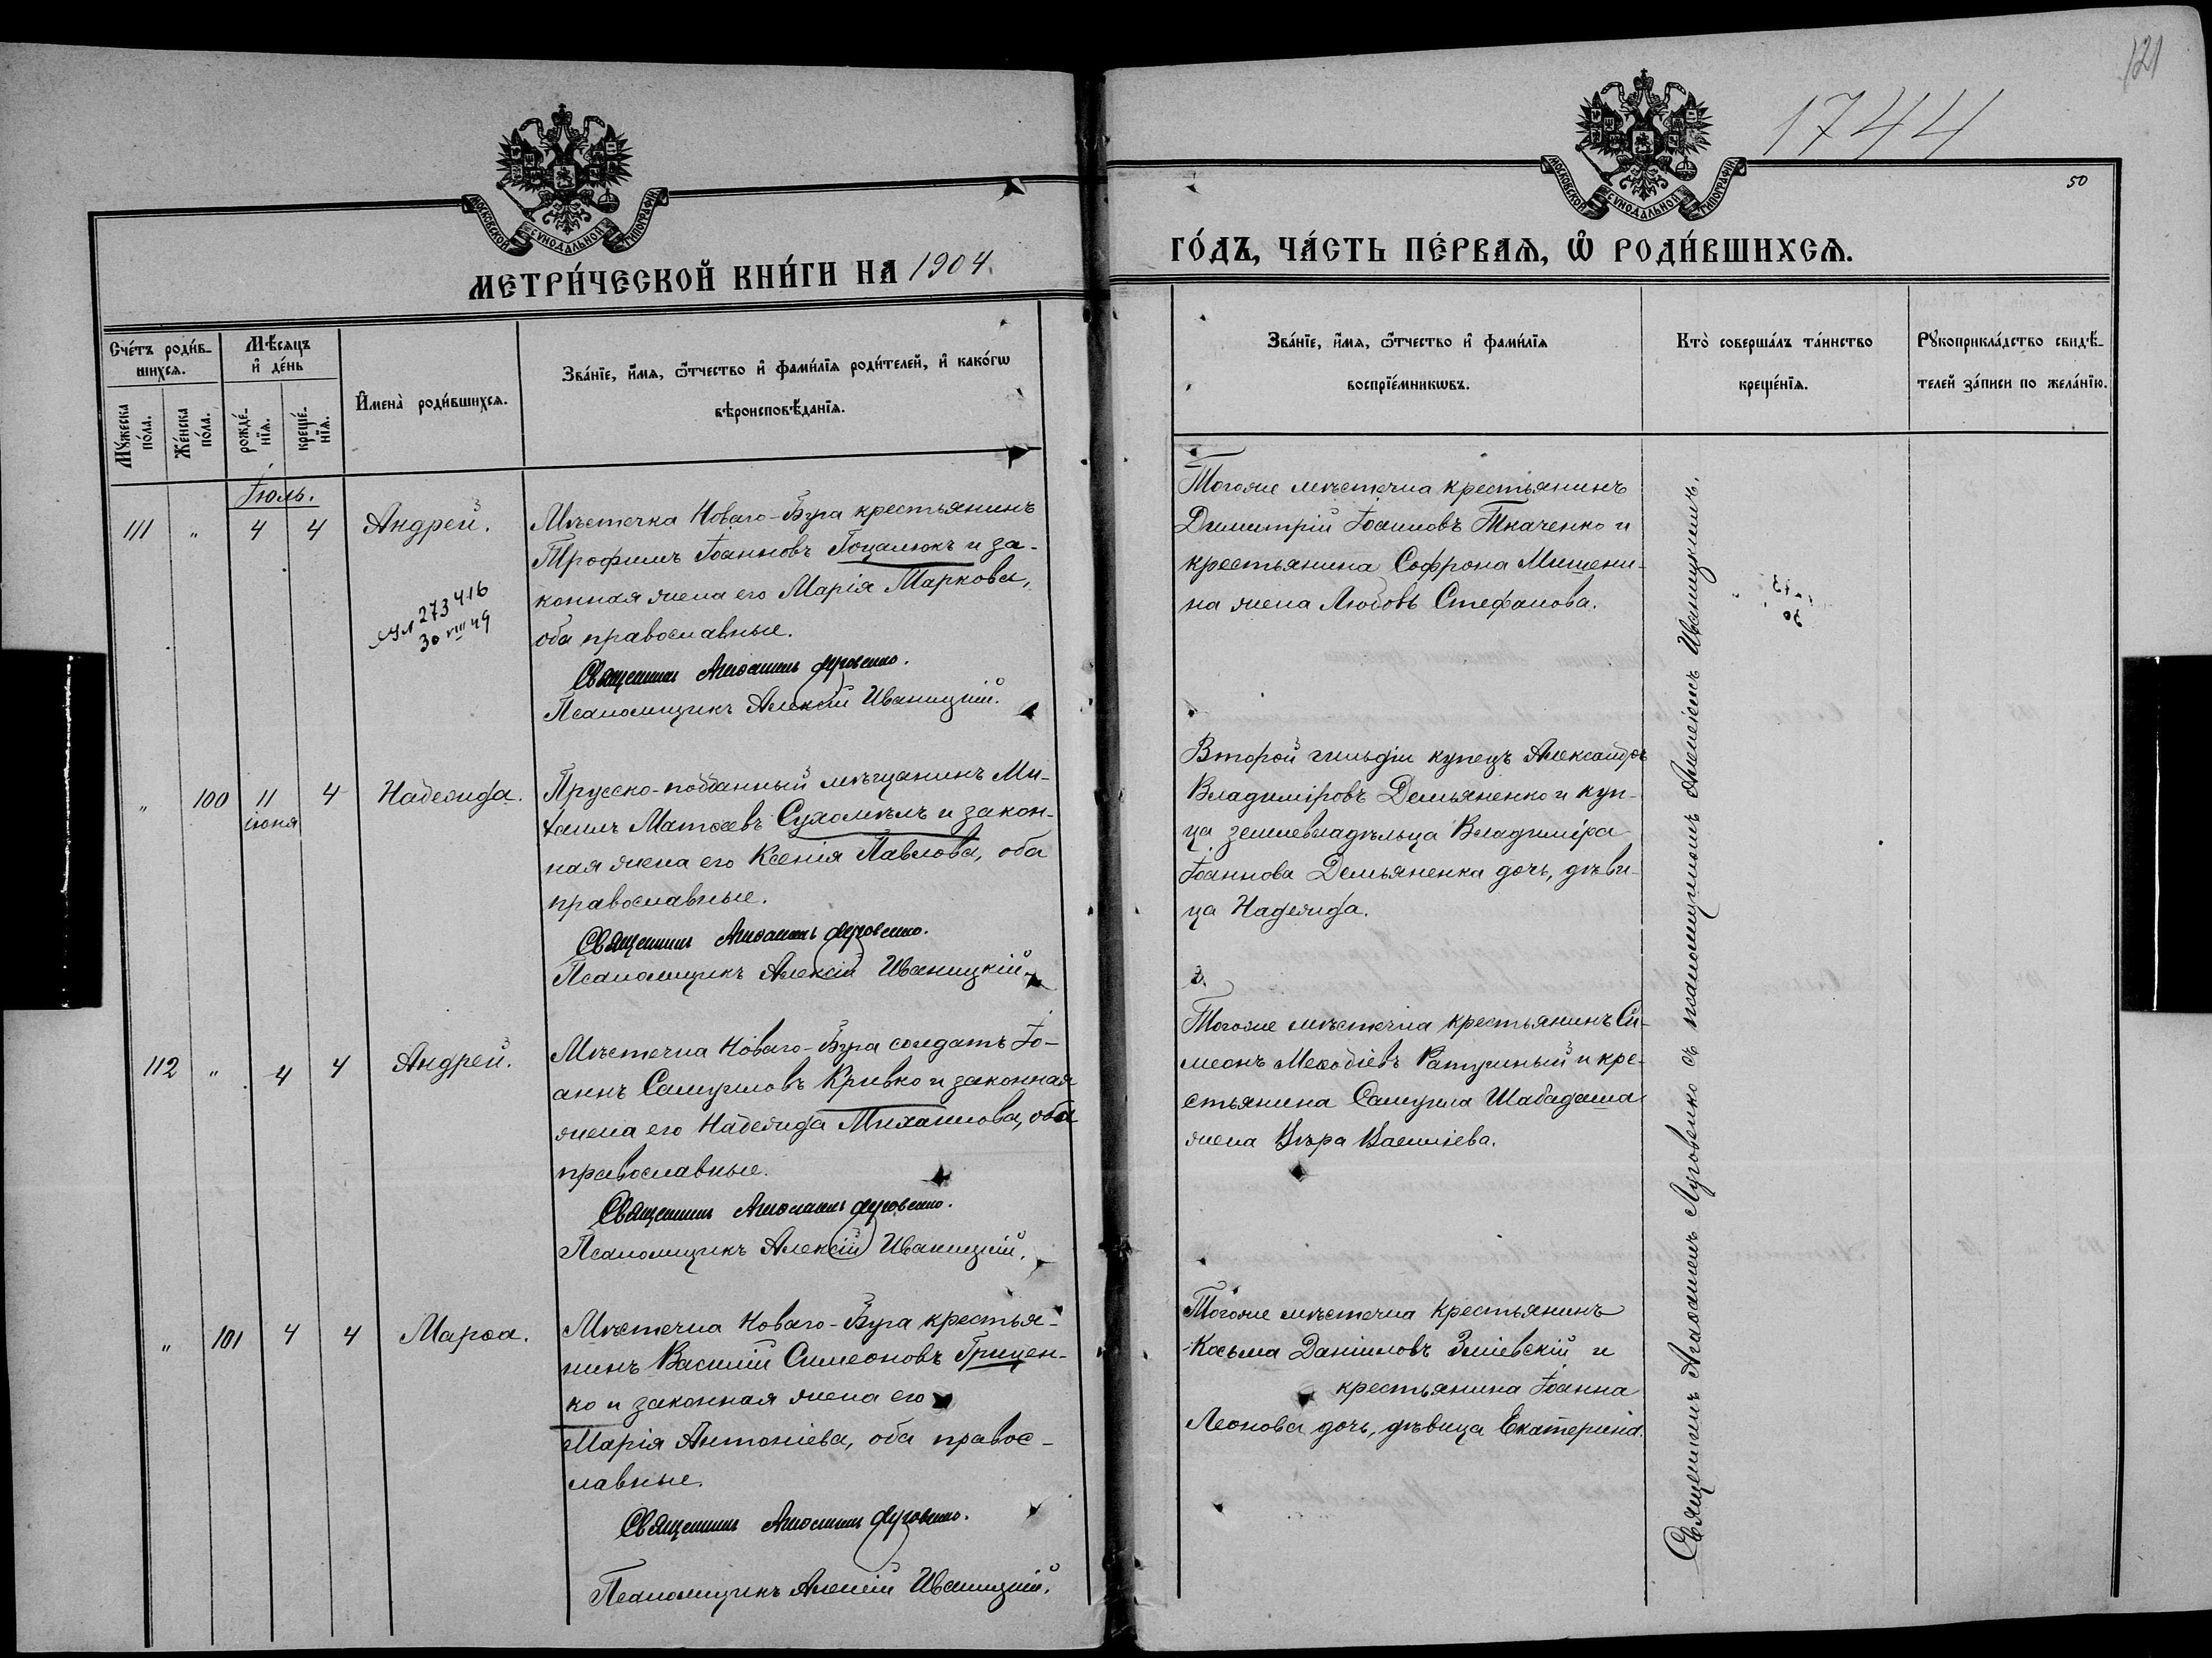 121
1744
50
МОСКОВСКОЙ СѴНОДАЛЬНОЙ ТИПОГРАФІИ
МОСКОВСКОЙ СѴНОДАЛЬНОЙ ТИПОГРАФІИ
МЕТРИ́ЧЕСКОЙ КНИ́ГИ НА 1904
ГО́ДЪ, ЧА́СТЬ ПЕ́РВАѦ, Ѡ҆ РОДИ́ВШИХСѦ.
Сче́тъ роди́в-
шихсѧ.
Мꙋ́жеска по́ла.
Же́нска по́ла.
Мѣ́сѧцъ
и҆ де́нь
рожде́-
нїѧ.
креще́-
нїѧ.
И҆мена̀ роди́вшихсѧ.
Зва́нїе, и҆́мѧ, ѻ҆́тчество и҆ фами́лїѧ роди́телей, и҆ како́гѡ
вѣроисповѣ́данїѧ.
Зва́нїе, и҆́мѧ, ѻ҆́тчество и҆ фами́лїѧ
воспрїе́мникѡвъ.
Кто̀ соверша́лъ та́инство
креще́нїѧ.
Рꙋкоприкла́дство свидѣ́-
телей за́писи по жела́нїю.
Іюль.
111 " 4 4 Андрей.
273416
30 VIII 49
Мѣстечка Новаго-Буга крестьянинъ
Трофимъ Іоанновъ Гоцалюкъ и за-
конная жена его Марія Маркова,
оба православные.
Священникъ Аѳанасій Луговенко.
Псаломщикъ Алексій Иваницкій.
Тогоже мѣстечка крестьянинъ
Димитрій Іоанновъ Ткаченко и
крестьянина Софрона Мишени-
на жена Любовь Стефанова.
" 100 11 4 Надежда.
іюня
Прусско-подданный мѣщанинъ Ми-
хаилъ Матѳеевъ Сухомѣлъ и закон-
ная жена его Ксенія Павлова, оба
православные.
Священникъ Аѳанасій Луговенко.
Псаломщикъ Алексій Иваницкій.
Второй гильдіи купецъ Александръ
Владиміровъ Демьяненко и куп-
ца землевладѣльца Владиміра
Іоаннова Демьяненка дочь, дѣви-
ца Надежда.
112 " 4 4 Андрей.
Мѣстечка Новаго-Буга солдатъ Іо-
аннъ Самуиловъ Кривко и законная
жена его Надежда Михаилова, оба
православные.
Священникъ Аѳанасій Луговенко.
Псаломщикъ Алексій Иваницкій.
Тогоже мѣстечка крестьянинъ Си-
меонъ Меѳодіевъ Ратушный и кре-
стьянина Самуила Шабадаша
жена Вѣра Василіева.
" 101 4 4 Марѳа.
Мѣстечка Новаго-Буга крестья-
нинъ Василій Симеоновъ Грицен-
ко и законная жена его
Марія Антоніева, оба правос-
лавные.
Священникъ Аѳанасій Луговенко.
Псаломщикъ Алексій Иваницкій.
Тогоже мѣстечка крестьянинъ
Косьма Даніиловъ Зміевскій и
крестьянина Іоанна
Леонова дочь, дѣвица Екатерина.
Священникъ Аѳанасій Луговенко съ псаломщикомъ Алексіемъ Иваницкимъ.